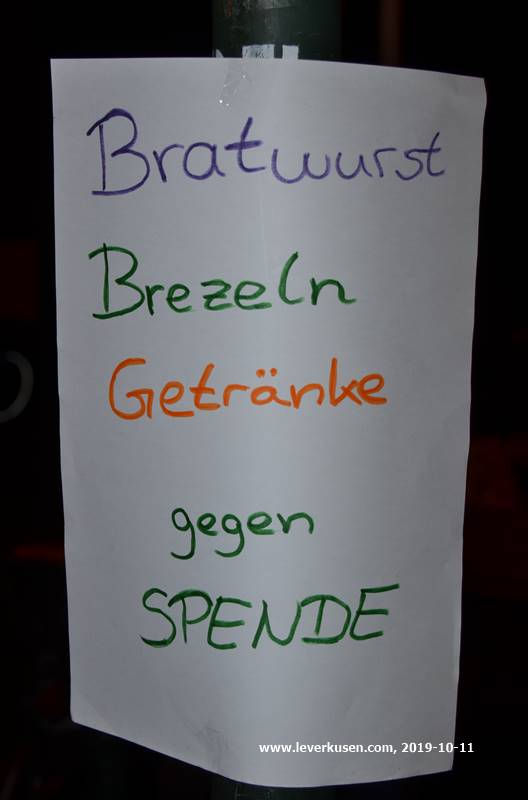 Bratwurst
Brezeln
Getränke
gegen
SPENDE
www.leverkusen.com, 2019-10-11